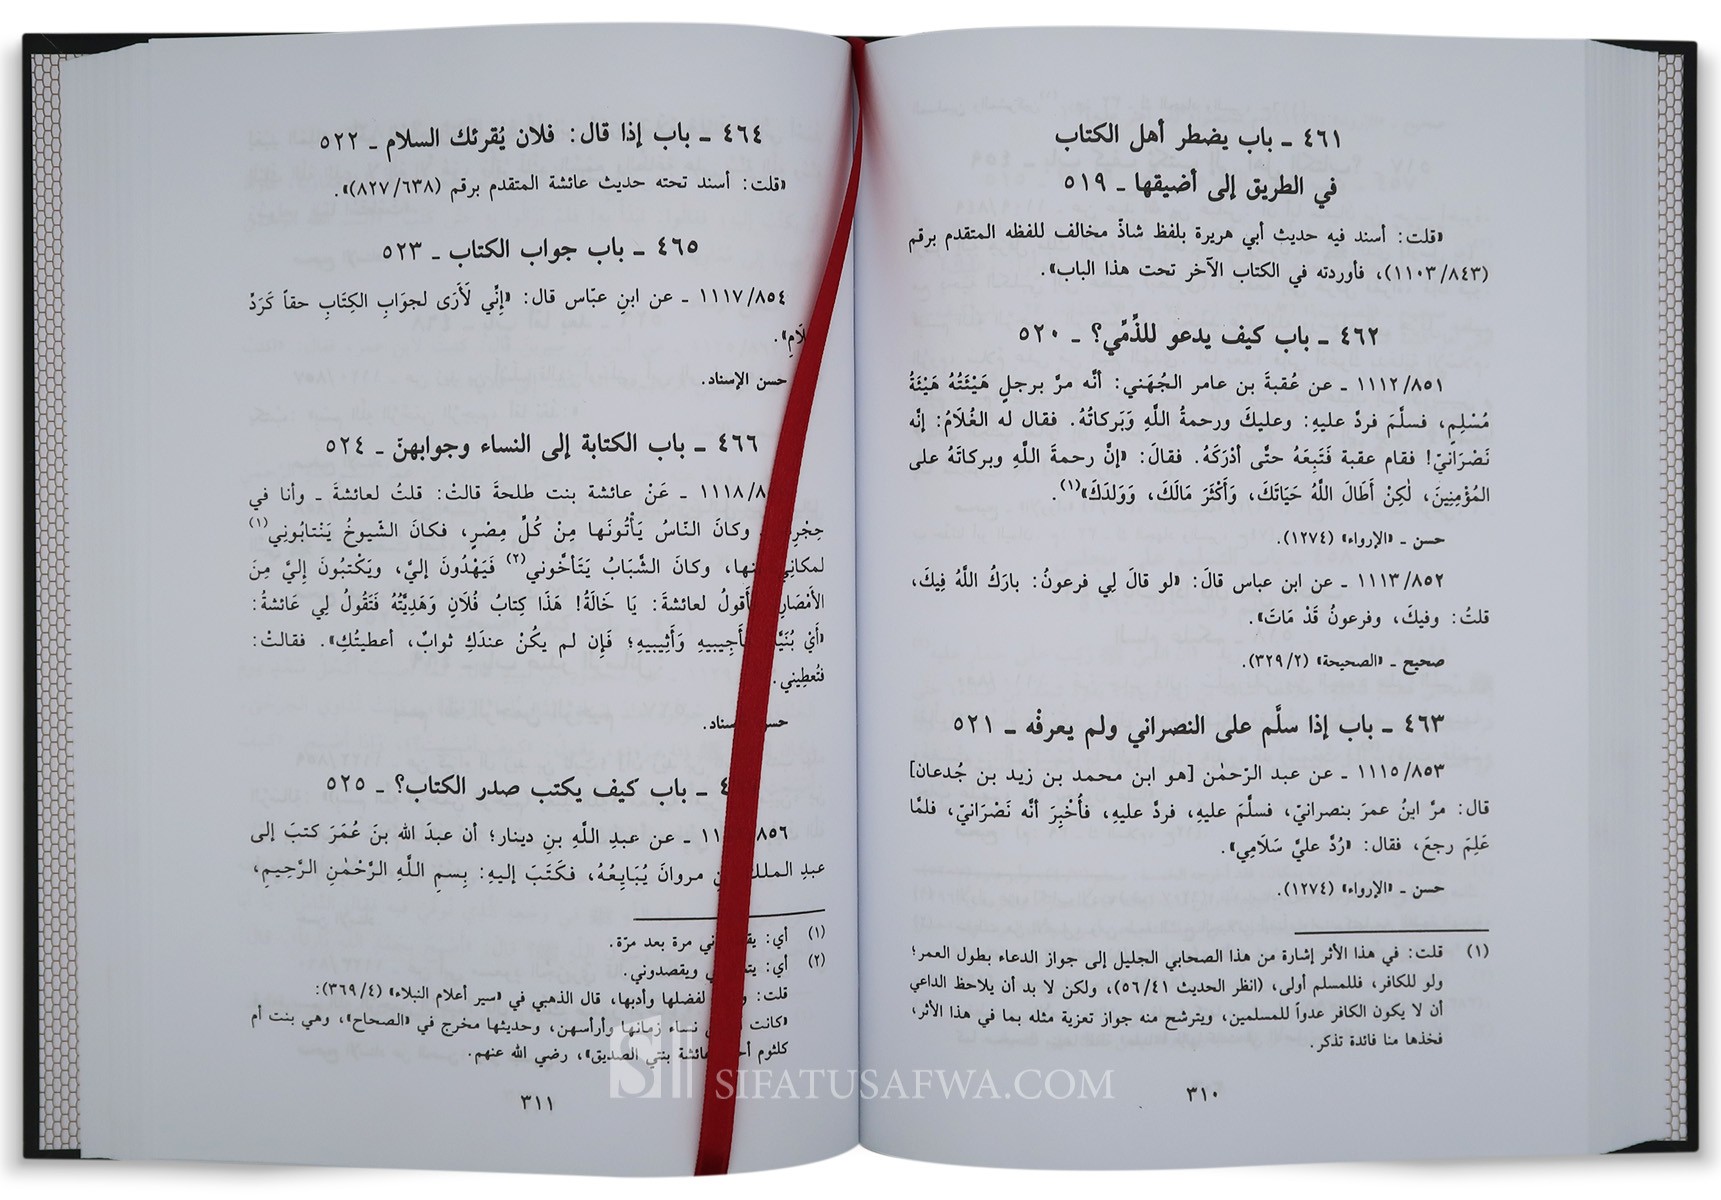 ٤٦١ ـ باب يضطر أهل الكتاب
في الطريق إلى أضيقها ـ ٥١٩
«قلت: أسند فيه حديث أبي هريرة بلفظ شاذّ مخالف للفظه المتقدم برقم
(١١٠٣/٨٤٣)، فأوردته في الكتاب الآخر تحت هذا الباب».
٤٦٢ ـ باب كيف يدعو للذِّمِّي؟ ـ ٥٢٠
١١١٢/٨٥١ ـ عن عُقبةَ بن عامر الجُهَني: أنَّه مرَّ برجلٍ هَيْئَتُهُ هَيْئَةُ
مُسْلِمٍ، فسلَّمَ فردَّ عليهِ: وعليكَ ورحمةُ اللَّهِ وَبَركاتُهُ. فقال له الغُلَامُ: إنَّه
نَصْرَانيّ! فقام عقبة فَتَبِعَهُ حتَّى أدْرَكَهُ. فقالَ: «إنَّ رحمةَ اللَّهِ وبركاتَهُ على
المُؤْمِنِينَ، لٰكِنْ أَطَالَ اللَّهُ حَيَاتَكَ، وَأَكْثَرَ مَالَكَ، وَوَلدَكَ»(١).
حسن ـ «الإرواء» (١٢٧٤).
١١١٣/٨٥٢ ـ عن ابن عباس قالَ: «لو قالَ لِي فرعونُ: بارَكَ اللَّهُ فِيكَ،
قلتُ: وفيكَ، وفرعونُ قَدْ مَاتَ».
صحيح ـ «الصحيحة» (٣٢٩/٢).
٤٦٣ ـ باب إذا سلَّم على النصراني ولم يعرفْه ـ ٥٢١
١١١٥/٨٥٣ ـ عن عبد الرّحمٰن [هو ابن محمد بن زيد بن جُدعان]
قال: مرَّ ابنُ عمرَ بنصرانيّ، فسلَّمَ عليهِ، فردَّ عليهِ، فأُخْبِرَ أنَّه نَصْرَانيّ، فلمَّا
عَلِمَ رجعَ، فقال: «رُدَّ عليَّ سَلَامِي».
حسن ـ «الإرواء» (١٢٧٤).
(١) قلت: في هذا الأثر إشارة من هذا الصحابي الجليل إلى جواز الدعاء بطول العمر؛
ولو للكافر، فللمسلم أولى، (انظر الحديث ٥٦/٤١)، ولكن لا بد أن يلاحظ الداعي
أن لا يكون الكافر عدواً للمسلمين، ويترشح منه جواز تعزية مثله بما في هذا الأثر،
فخذها منا فائدة تذكر.
٣١٠
٤٦٤ ـ باب إذا قال: فلان يُقرئك السلام ـ ٥٢٢
«قلت: أسند تحته حديث عائشة المتقدم برقم (٨٢٧/٦٣٨)».
٤٦٥ ـ باب جواب الكتاب ـ ٥٢٣
١١١٧/٨٥٤ ـ عن ابنِ عبّاس قال: «إنِّي لَأَرَى لجوَابِ الكِتَابِ حقاً كَرَدِّ
حسن الإسناد.
٤٦٦ ـ باب الكتابة إلى النساء وجوابهنّ ـ ٥٢٤
١١١٨/ ـ عَنْ عائشة بنت طلحةَ قالتْ: قلتُ لعائشةَ ـ وأنا في
وكانَ النّاسُ يَأْتُونَها مِنْ كُلِّ مِصْرٍ، فكانَ الشّيوخُ يَنْتابُوني(١)
لمكانِي ، وكانَ الشَّبَابُ يَتَأخَّوني(٢) فَيَهْدُونَ إليَّ، ويَكْتبُونَ إليَّ مِنَ
لعائشةَ: يَا خَالَةُ! هَذَا كِتابُ فُلَانٍ وَهَدِيَّتُهُ فَتَقُولُ لِي عَائشةُ:
«أَيْ وَأَثِيبيهِ؛ فَإن لم يكُنْ عندَكِ ثوابٌ، أعطيتُكِ». فقالتْ:
فتُعطِيني.
ـ باب كيف يكتب صدر الكتاب؟ ـ ٥٢٥
/٨٥٦ ـ عن عبدِ اللَّهِ بنِ دينار؛ أن عبدَ الله بنَ عُمَرَ كتبَ إلى
عبدِ مروانَ يُبَايِعُهُ، فكَتَبَ إليهِ: بِسمِ اللَّهِ الرَّحْمٰنِ الرَّحِيمِ،
(١) أي: مرة بعد مرّة.
(٢) أي: ويقصدوني.
قلت: لفضلها وأدبها، قال الذهبي في «سير أعلام النبلاء» (٣٦٩/٤):
«كانت نساء زمانها وأرأسهن، وحديثها مخرج في «الصحاح»، وهي بنت أم
كلثوم بنتي الصديق»، رضي الله عنهم.
٣١١
SIFATUSAFWA.COM